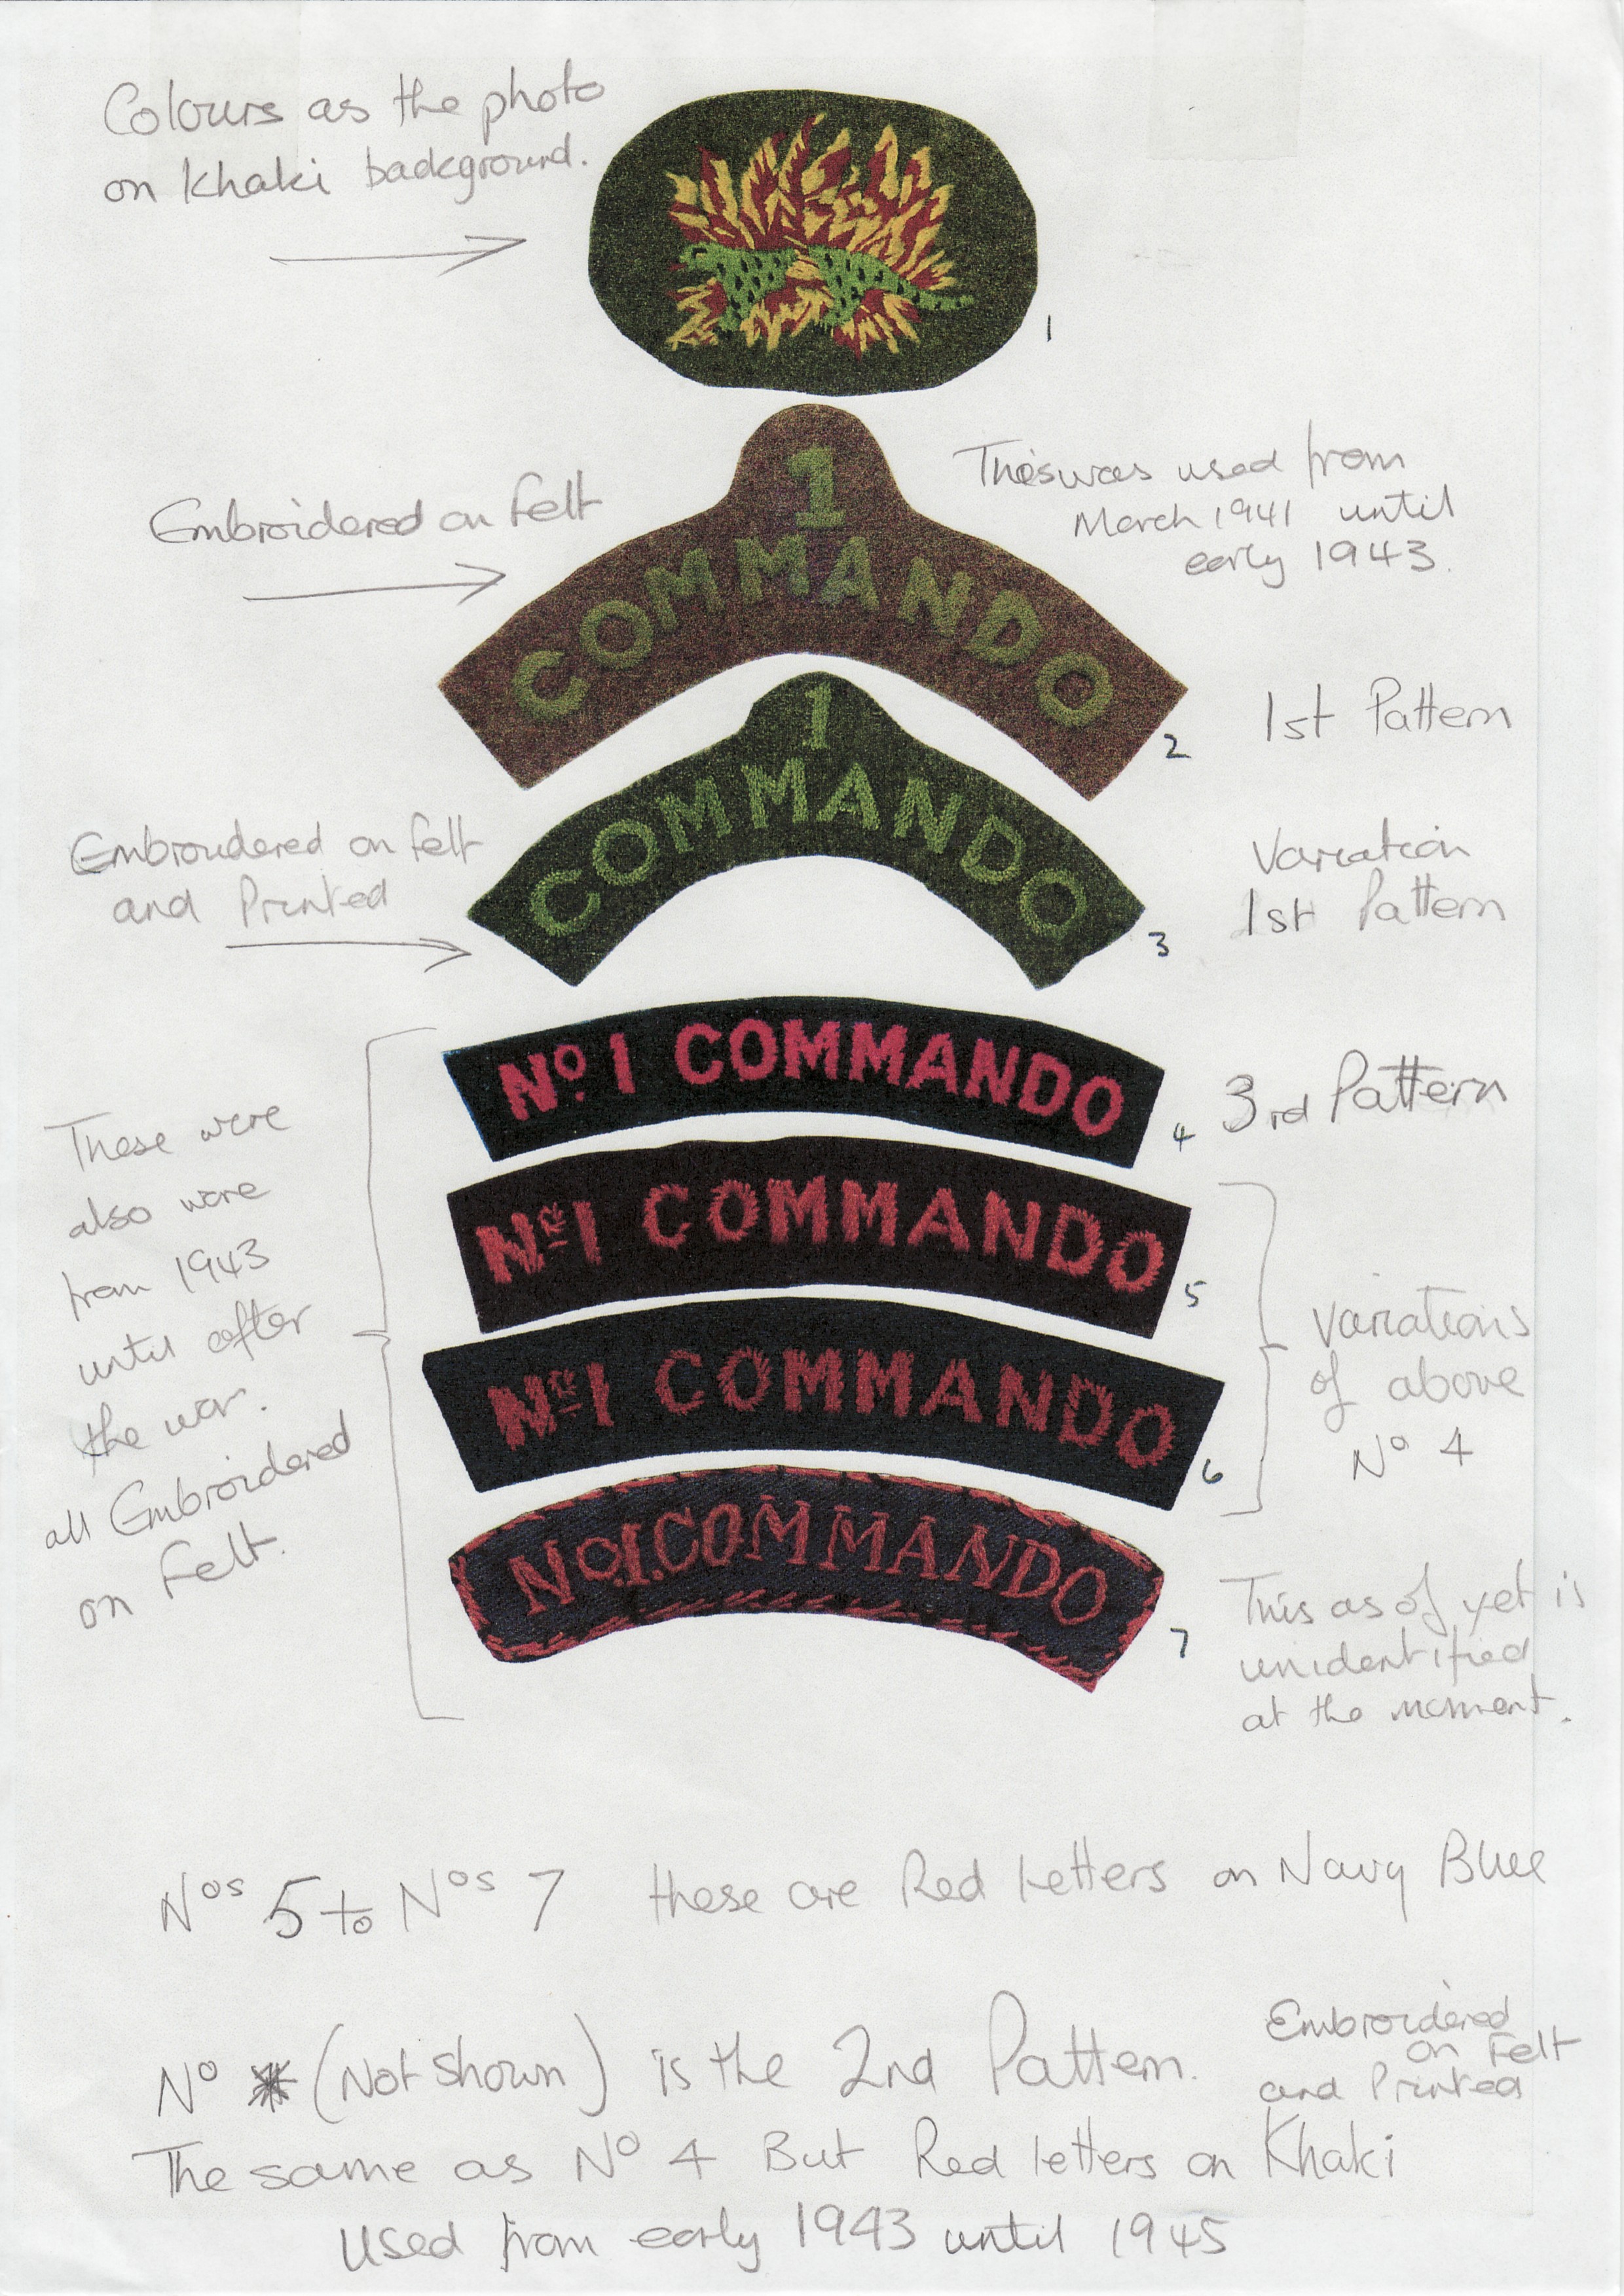 Colours as the photo
on Khaki background.
1
Embroidered on Felt
This was used from
March 1941 until
early 1943.
1
COMMANDO
2
1st Pattern
Embroudered on felt
and Printed
1
COMMANDO
3
Variation
1st Pattern
Nº 1 COMMANDO
4
3rd Pattern
These were
also wore
from 1943
until after
the war.
all Embroidered
on Felt.
Nᴿᴱ 1 COMMANDO
5
Nᴿᴱ 1 COMMANDO
6
Variations
of above
Nº 4
No.1.COMMANDO
7
This as of yet is
unidentified
at the moment.
Nos 5 to Nos 7 these are Red Letters on Navy Blue
Nº (Not Shown) is the 2nd Pattern.
Embroidered
on Felt
and Printed
The same as Nº 4 But Red letters on Khaki
Used from early 1943 until 1945